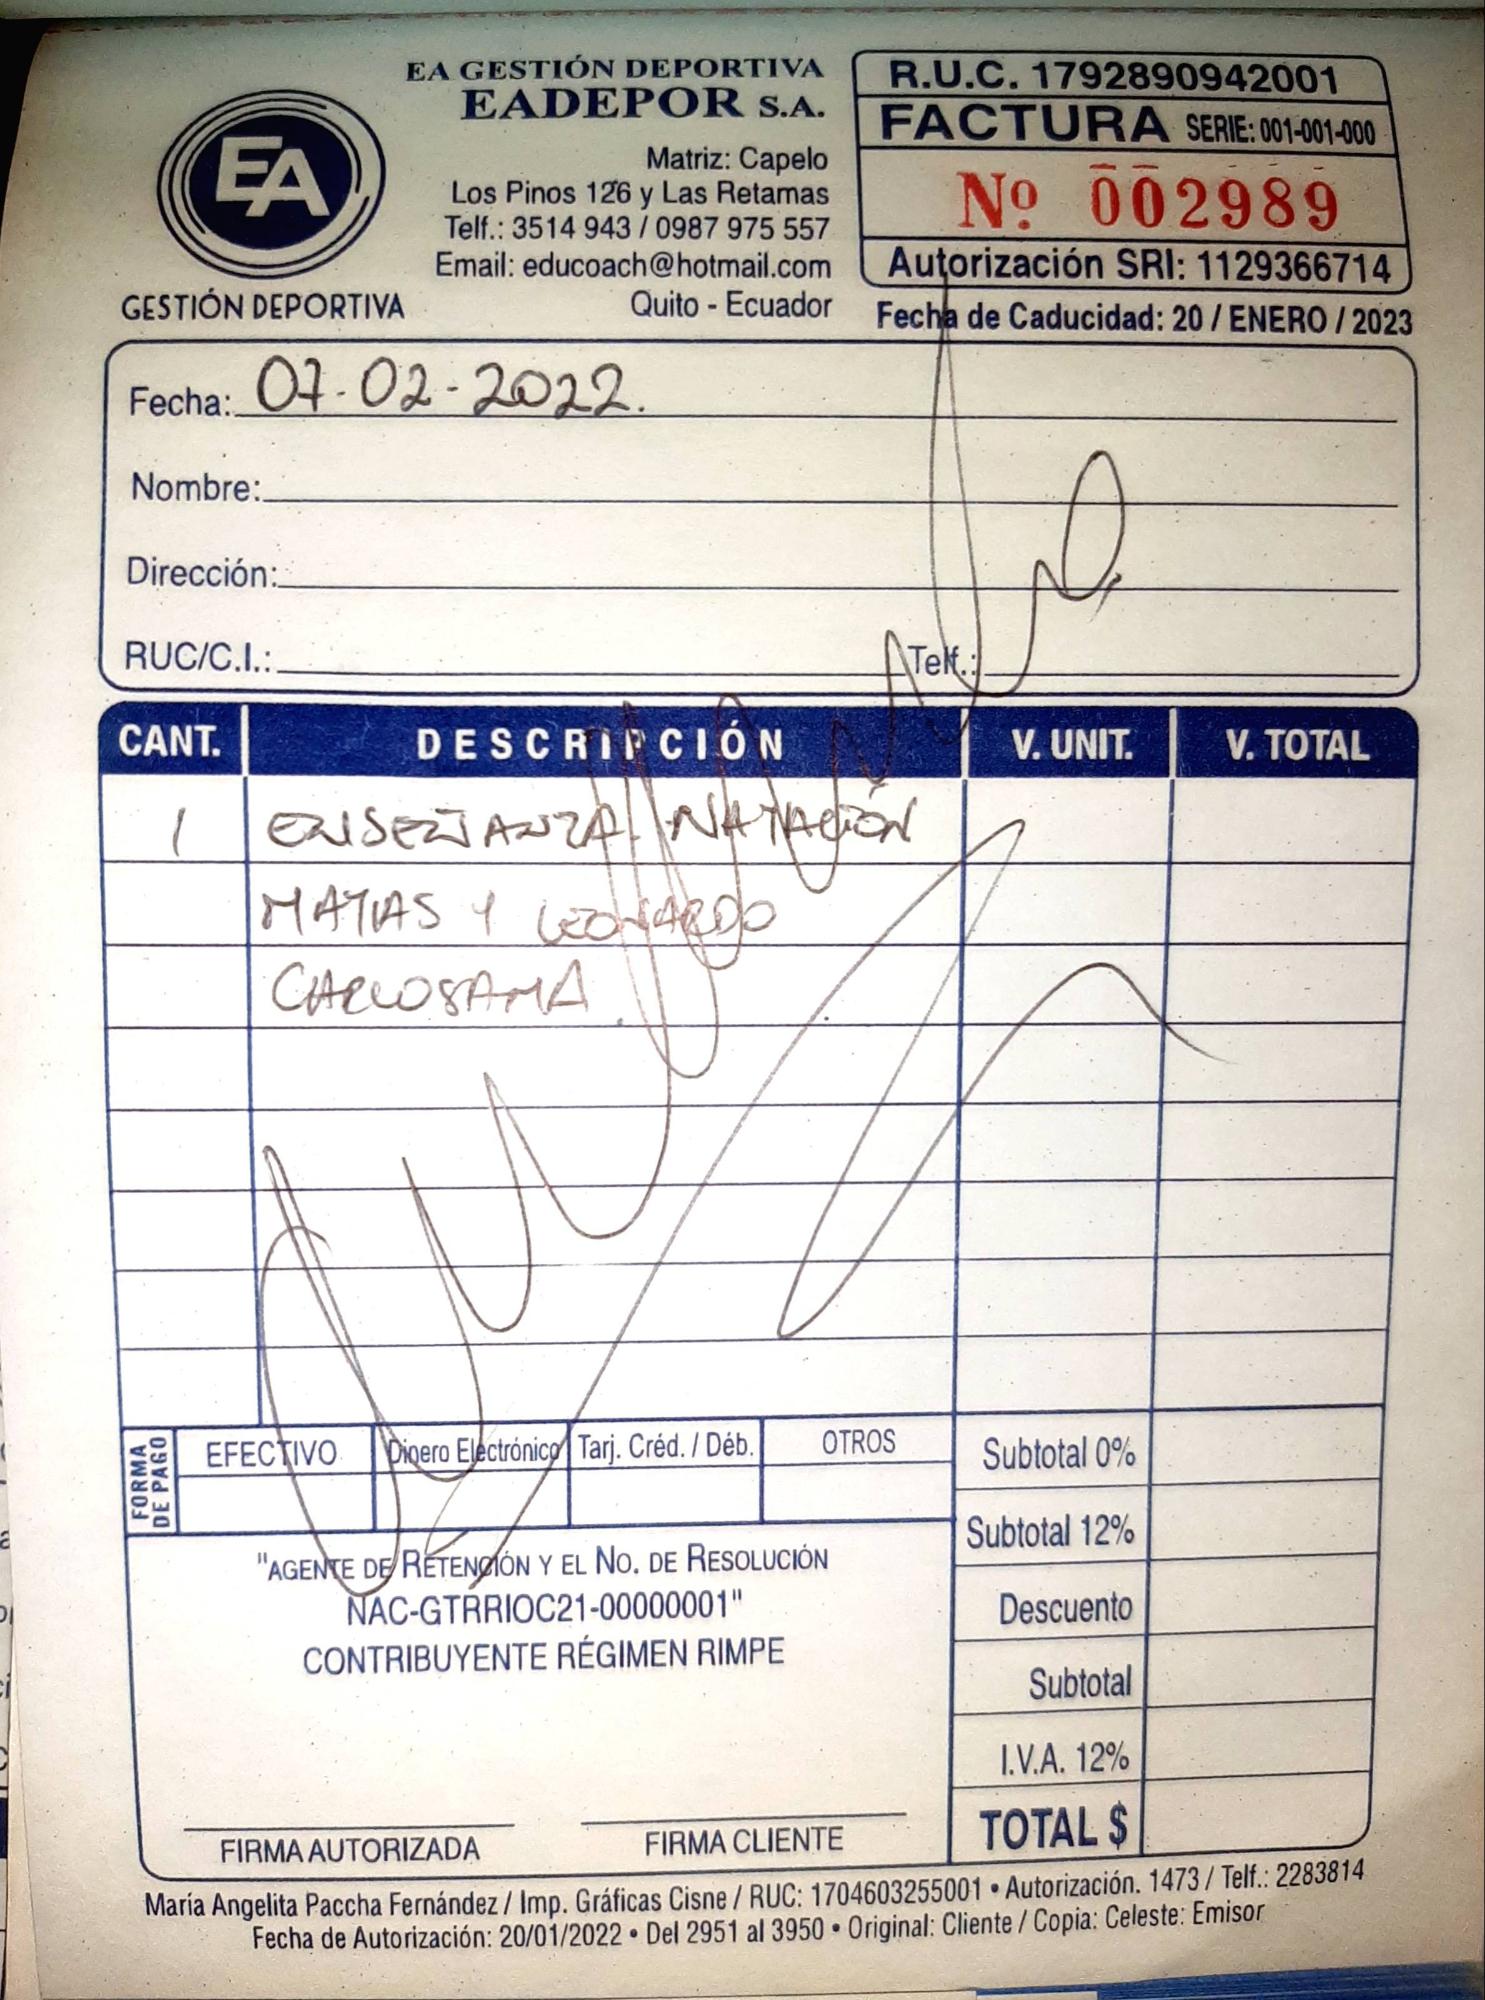 EA GESTIÓN DEPORTIVA
EADEPOR S.A.
Matriz: Capelo
Los Pinos 126 y Las Retamas
Telf.: 3514 943 / 0987 975 557
Email: educoach@hotmail.com
Quito - Ecuador
EA
GESTIÓN DEPORTIVA
R.U.C. 1792890942001
FACTURA SERIE: 001-001-000
Nº 002989
Autorización SRI: 1129366714
Fecha de Caducidad: 20 / ENERO / 2023
Fecha: 07-02-2022.
Nombre:
Dirección:
RUC/C.I.: Telf.:
CANT. DESCRIPCIÓN V. UNIT. V. TOTAL
1 ENSEÑANZA NATACIÓN
MATIAS Y LEONARDO
CARLOSAMA
FORMA DE PAGO
EFECTIVO Dinero Electrónico Tarj. Créd. / Déb. OTROS
Subtotal 0%
Subtotal 12%
Descuento
Subtotal
I.V.A. 12%
TOTAL $
"AGENTE DE RETENCIÓN Y EL NO. DE RESOLUCIÓN
NAC-GTRRIOC21-00000001"
CONTRIBUYENTE RÉGIMEN RIMPE
FIRMA AUTORIZADA FIRMA CLIENTE
María Angelita Paccha Fernández / Imp. Gráficas Cisne / RUC: 1704603255001 • Autorización. 1473 / Telf.: 2283814
Fecha de Autorización: 20/01/2022 • Del 2951 al 3950 • Original: Cliente / Copia: Celeste: Emisor